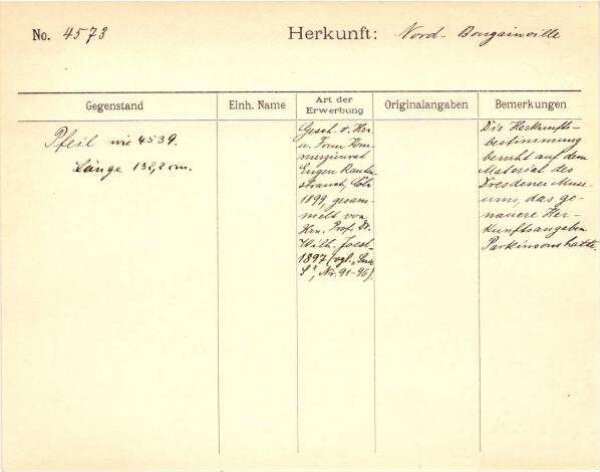 No. 4573 Herkunft: Nord-Bougainville
Gegenstand Einh. Name Art der Erwerbung Originalangaben Bemerkungen
Pfeil wie 4539.
Länge 138,2 cm.
Gesch. v. Hrn
u. Frau Kom-
merzienrat
Eugen Rauten-
strauch, Cöln
1899, gesam-
melt von
Hrn. Prof. Dr.
Wilh. Joest
1897 (vgl.
Nr. 91-96).
Die Herkunfts-
bestimmung
beruht auf dem
Material des
Dresdener Muse-
ums, das ge-
nauere Her-
kunftsangaben
Parkinsons hatte.